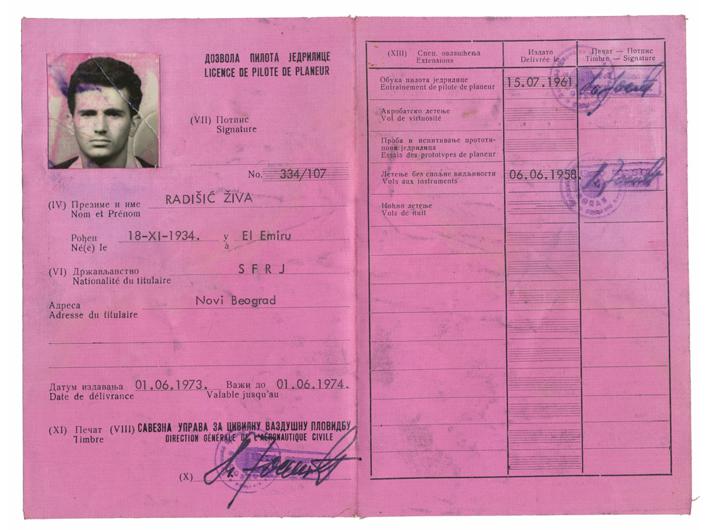 ДОЗВОЛА ПИЛОТА ЈЕДРИЛИЦЕ
LICENCE DE PILOTE DE PLANEUR
(VII) Потпис
Signature
No. 334/107
(IV) Презиме и име RADIŠIĆ ŽIVA
Nom et Prénom
Рођен 18-XI-1934. у El Emiru
Né(é) le à
(VI) Држављанство S F R J
Nationalité du titulaire
Адреса Novi Beograd
Adresse du titulaire
Датум издавања 01.06.1973. Важи до 01.06.1974.
Date de délivrance Valable jusqu'au
(XI) Печат (VIII) САВЕЗНА УПРАВА ЗА ЦИВИЛНУ ВАЗДУШНУ ПЛОВИДБУ
Timbre DIRECTION GÉNÉRALE DE L'AÉRONAUTIQUE CIVILE
(X)
(XIII) Спец. овлашћења Издато Печат — Потпис
Extensions Délivrée le Timbre — Signature
Обука пилота једрилице 15.07.1961
Entraînement de pilote de planeur
Акробатско летење
Vol de virtuosité
Проба и испитивање прототи-
пова једрилица
Essais des prototypes de planeur
Летење без спољне видљивости 06.06.1958.
Vols aux instruments
Ноћно летење
Vols de nuit